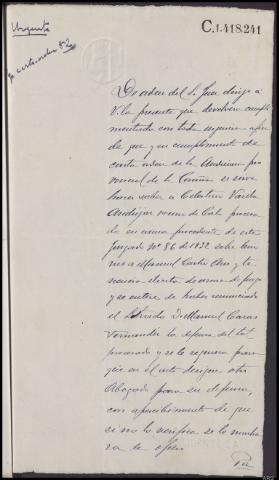 Urgente
C.1.418.241
De orden del S. Juez dirijo a
V. la presente que devolverá cumpli-
mentada con toda urgencia a fin
de que y en cumplimiento de
carta orden de la Audiencia pro-
vincial de la Coruña se sirva
hacer saber a Celestino Varela
vecino de procesa-
do en causa procedente de este
Juzgado Nº 86 de 1922 sobre lesio-
nes a Manuel Castro y te-
nencia ilícita de arma de fuego
y se entere de haber renunciado
el Letrado D. Manuel Casas
Fernandez la defensa del tal
procesado y se le requiera para
que en el acto designe otro
Abogado para su defensa,
con apercibimiento de que
si no lo verifica se le nombra-
rá de oficio